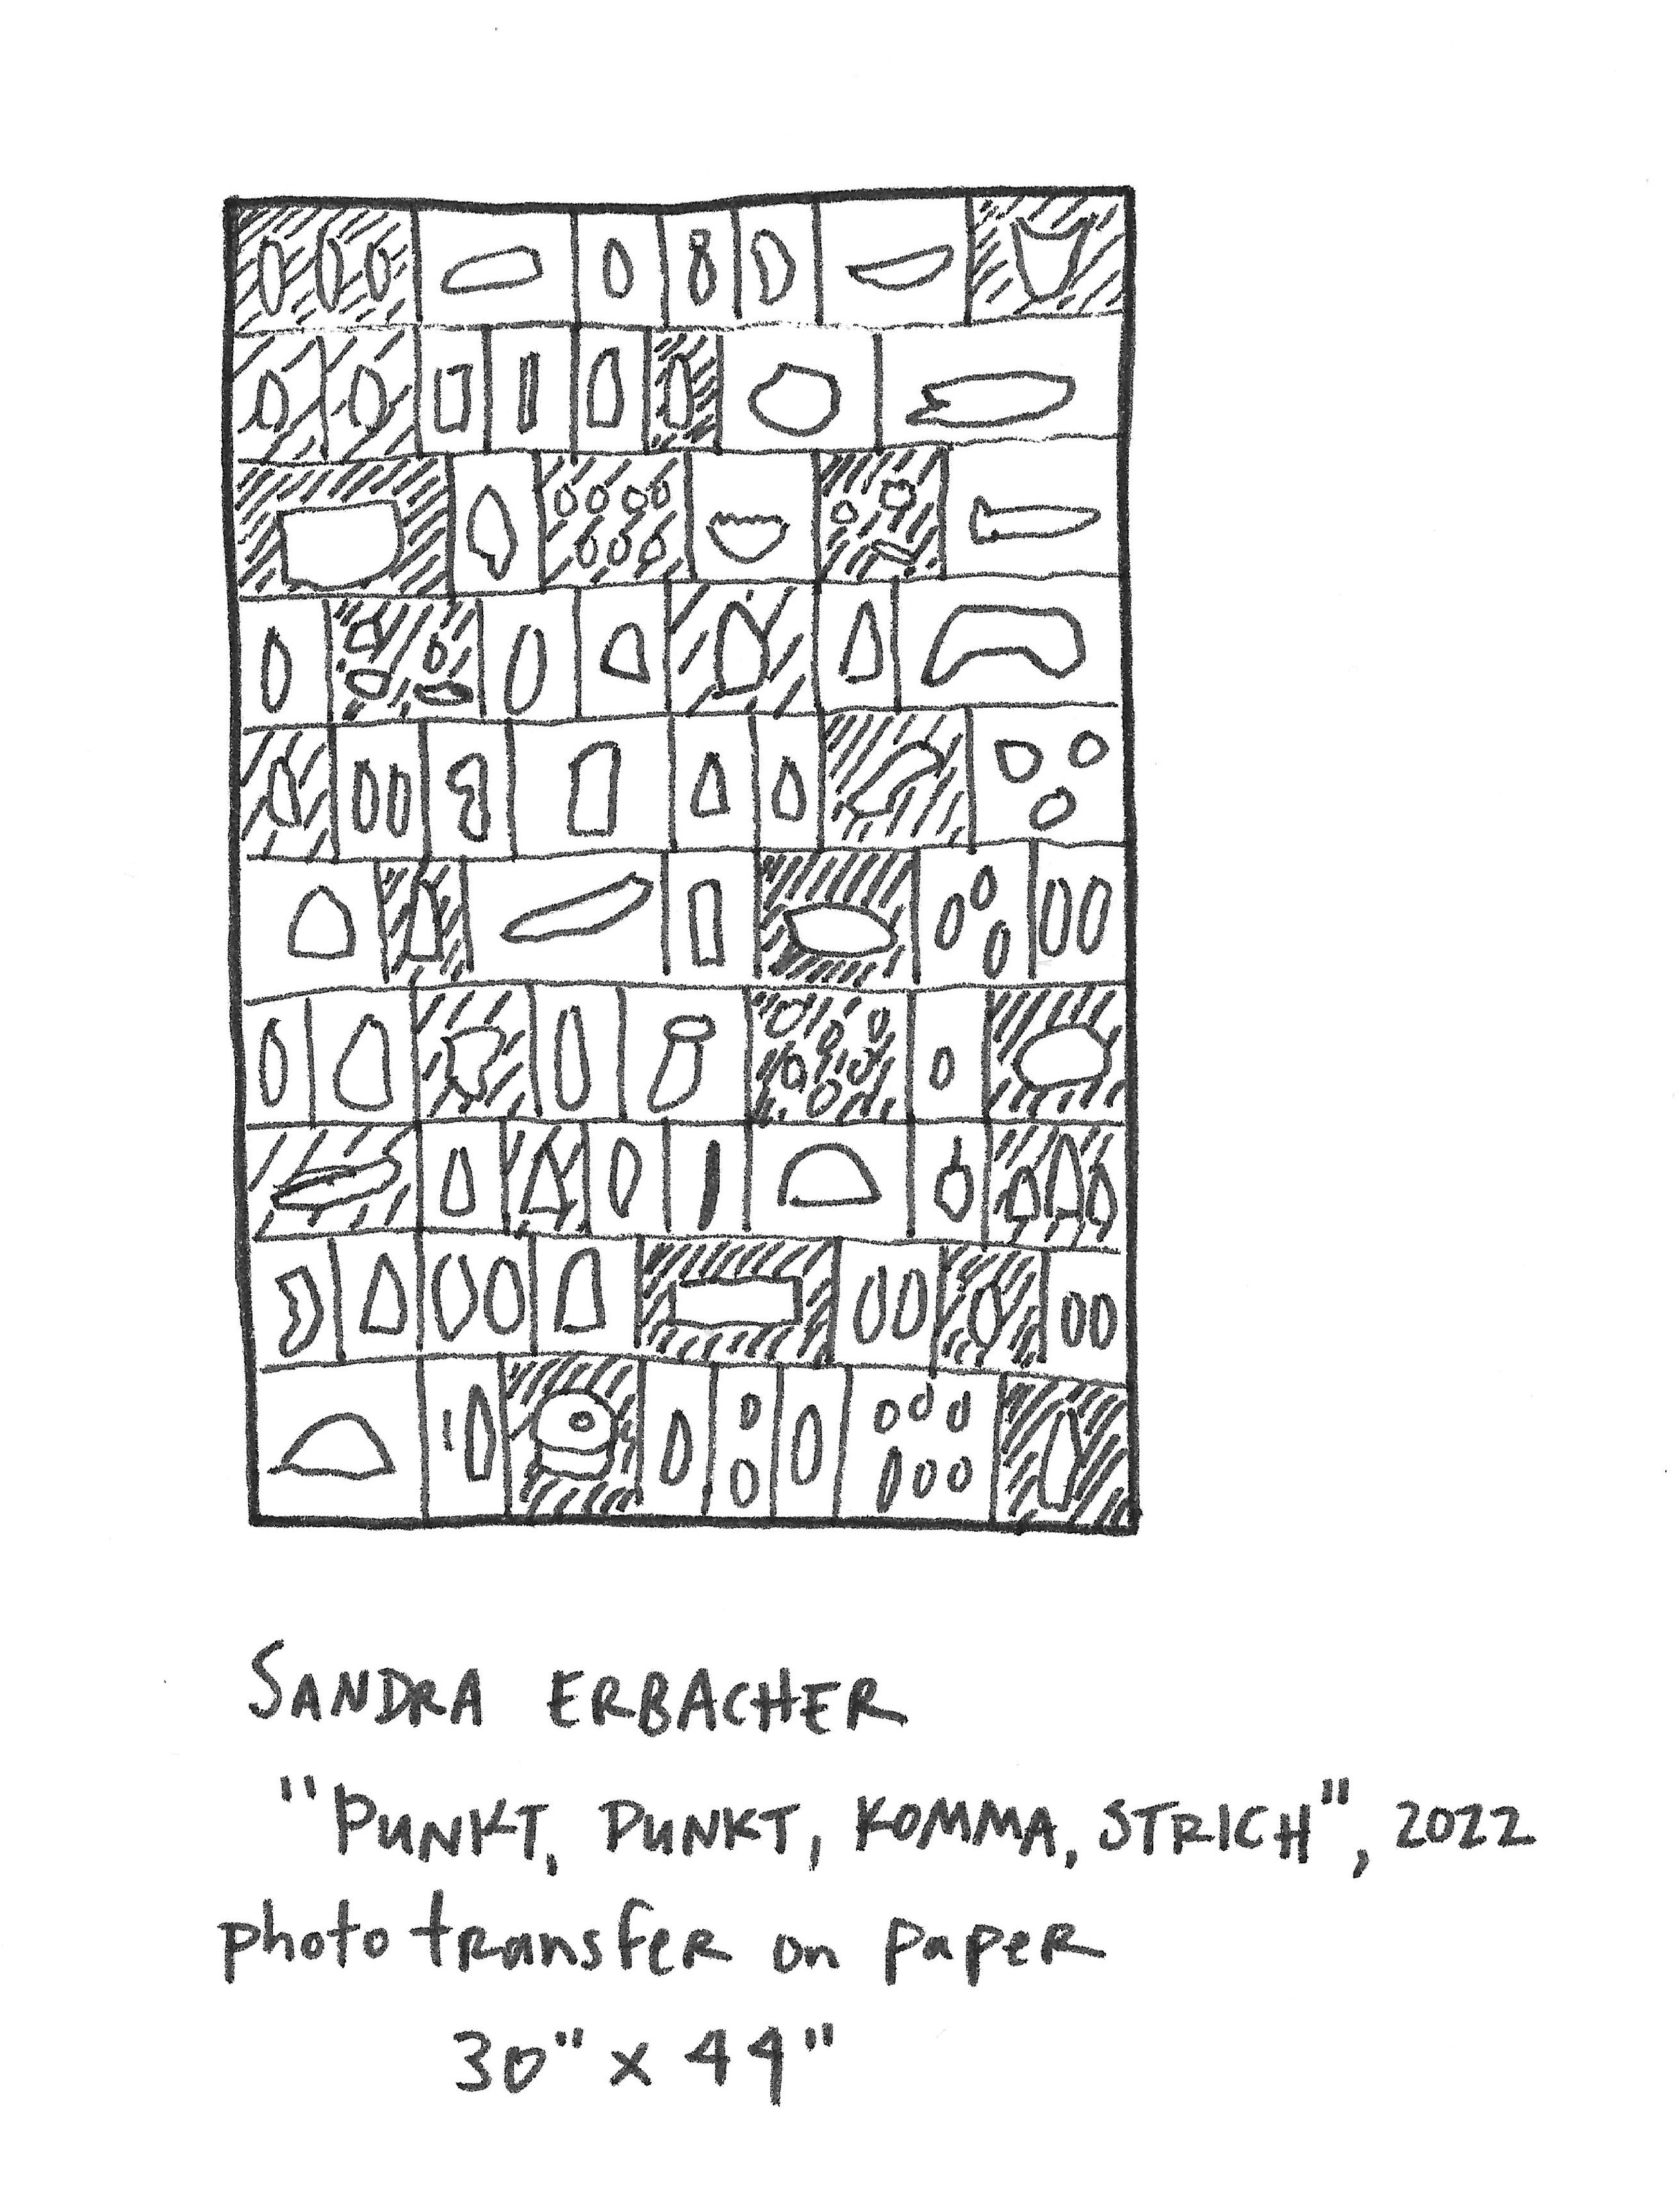 SANDRA ERBACHER
"PUNKT, PUNKT, KOMMA, STRICH", 2022
photo transfer on paper
30" x 44"